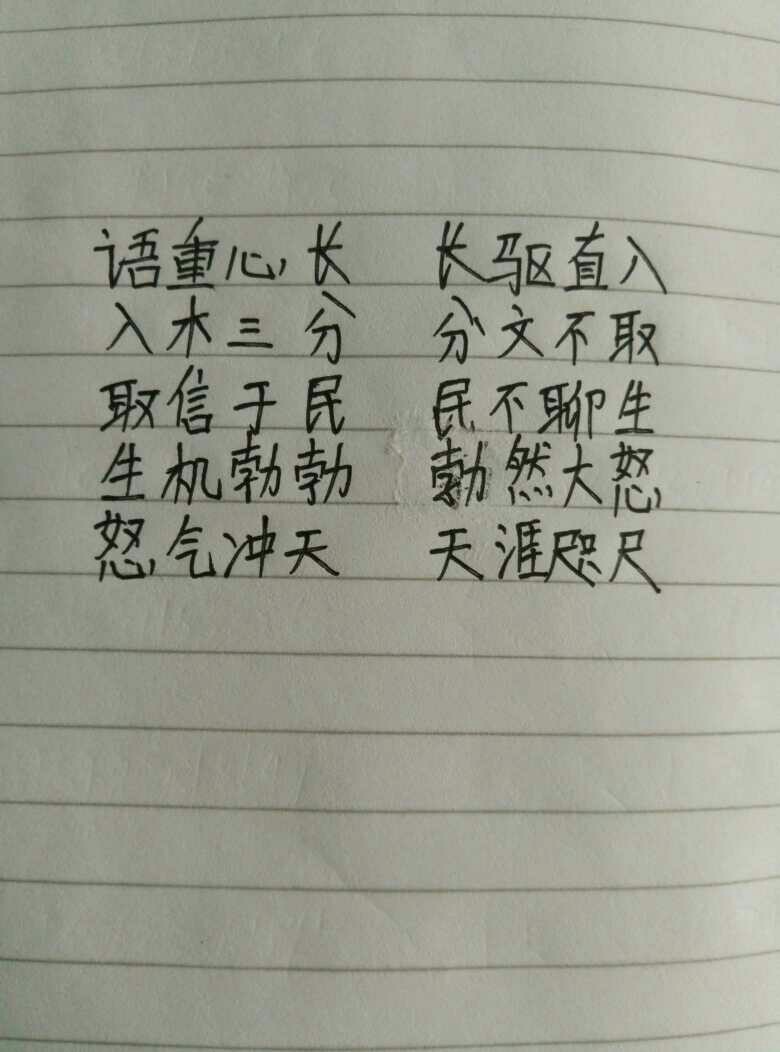 语重心长 长驱直入
入木三分 分文不取
取信于民 民不聊生
生机勃勃 勃然大怒
怒气冲天 天涯咫尺